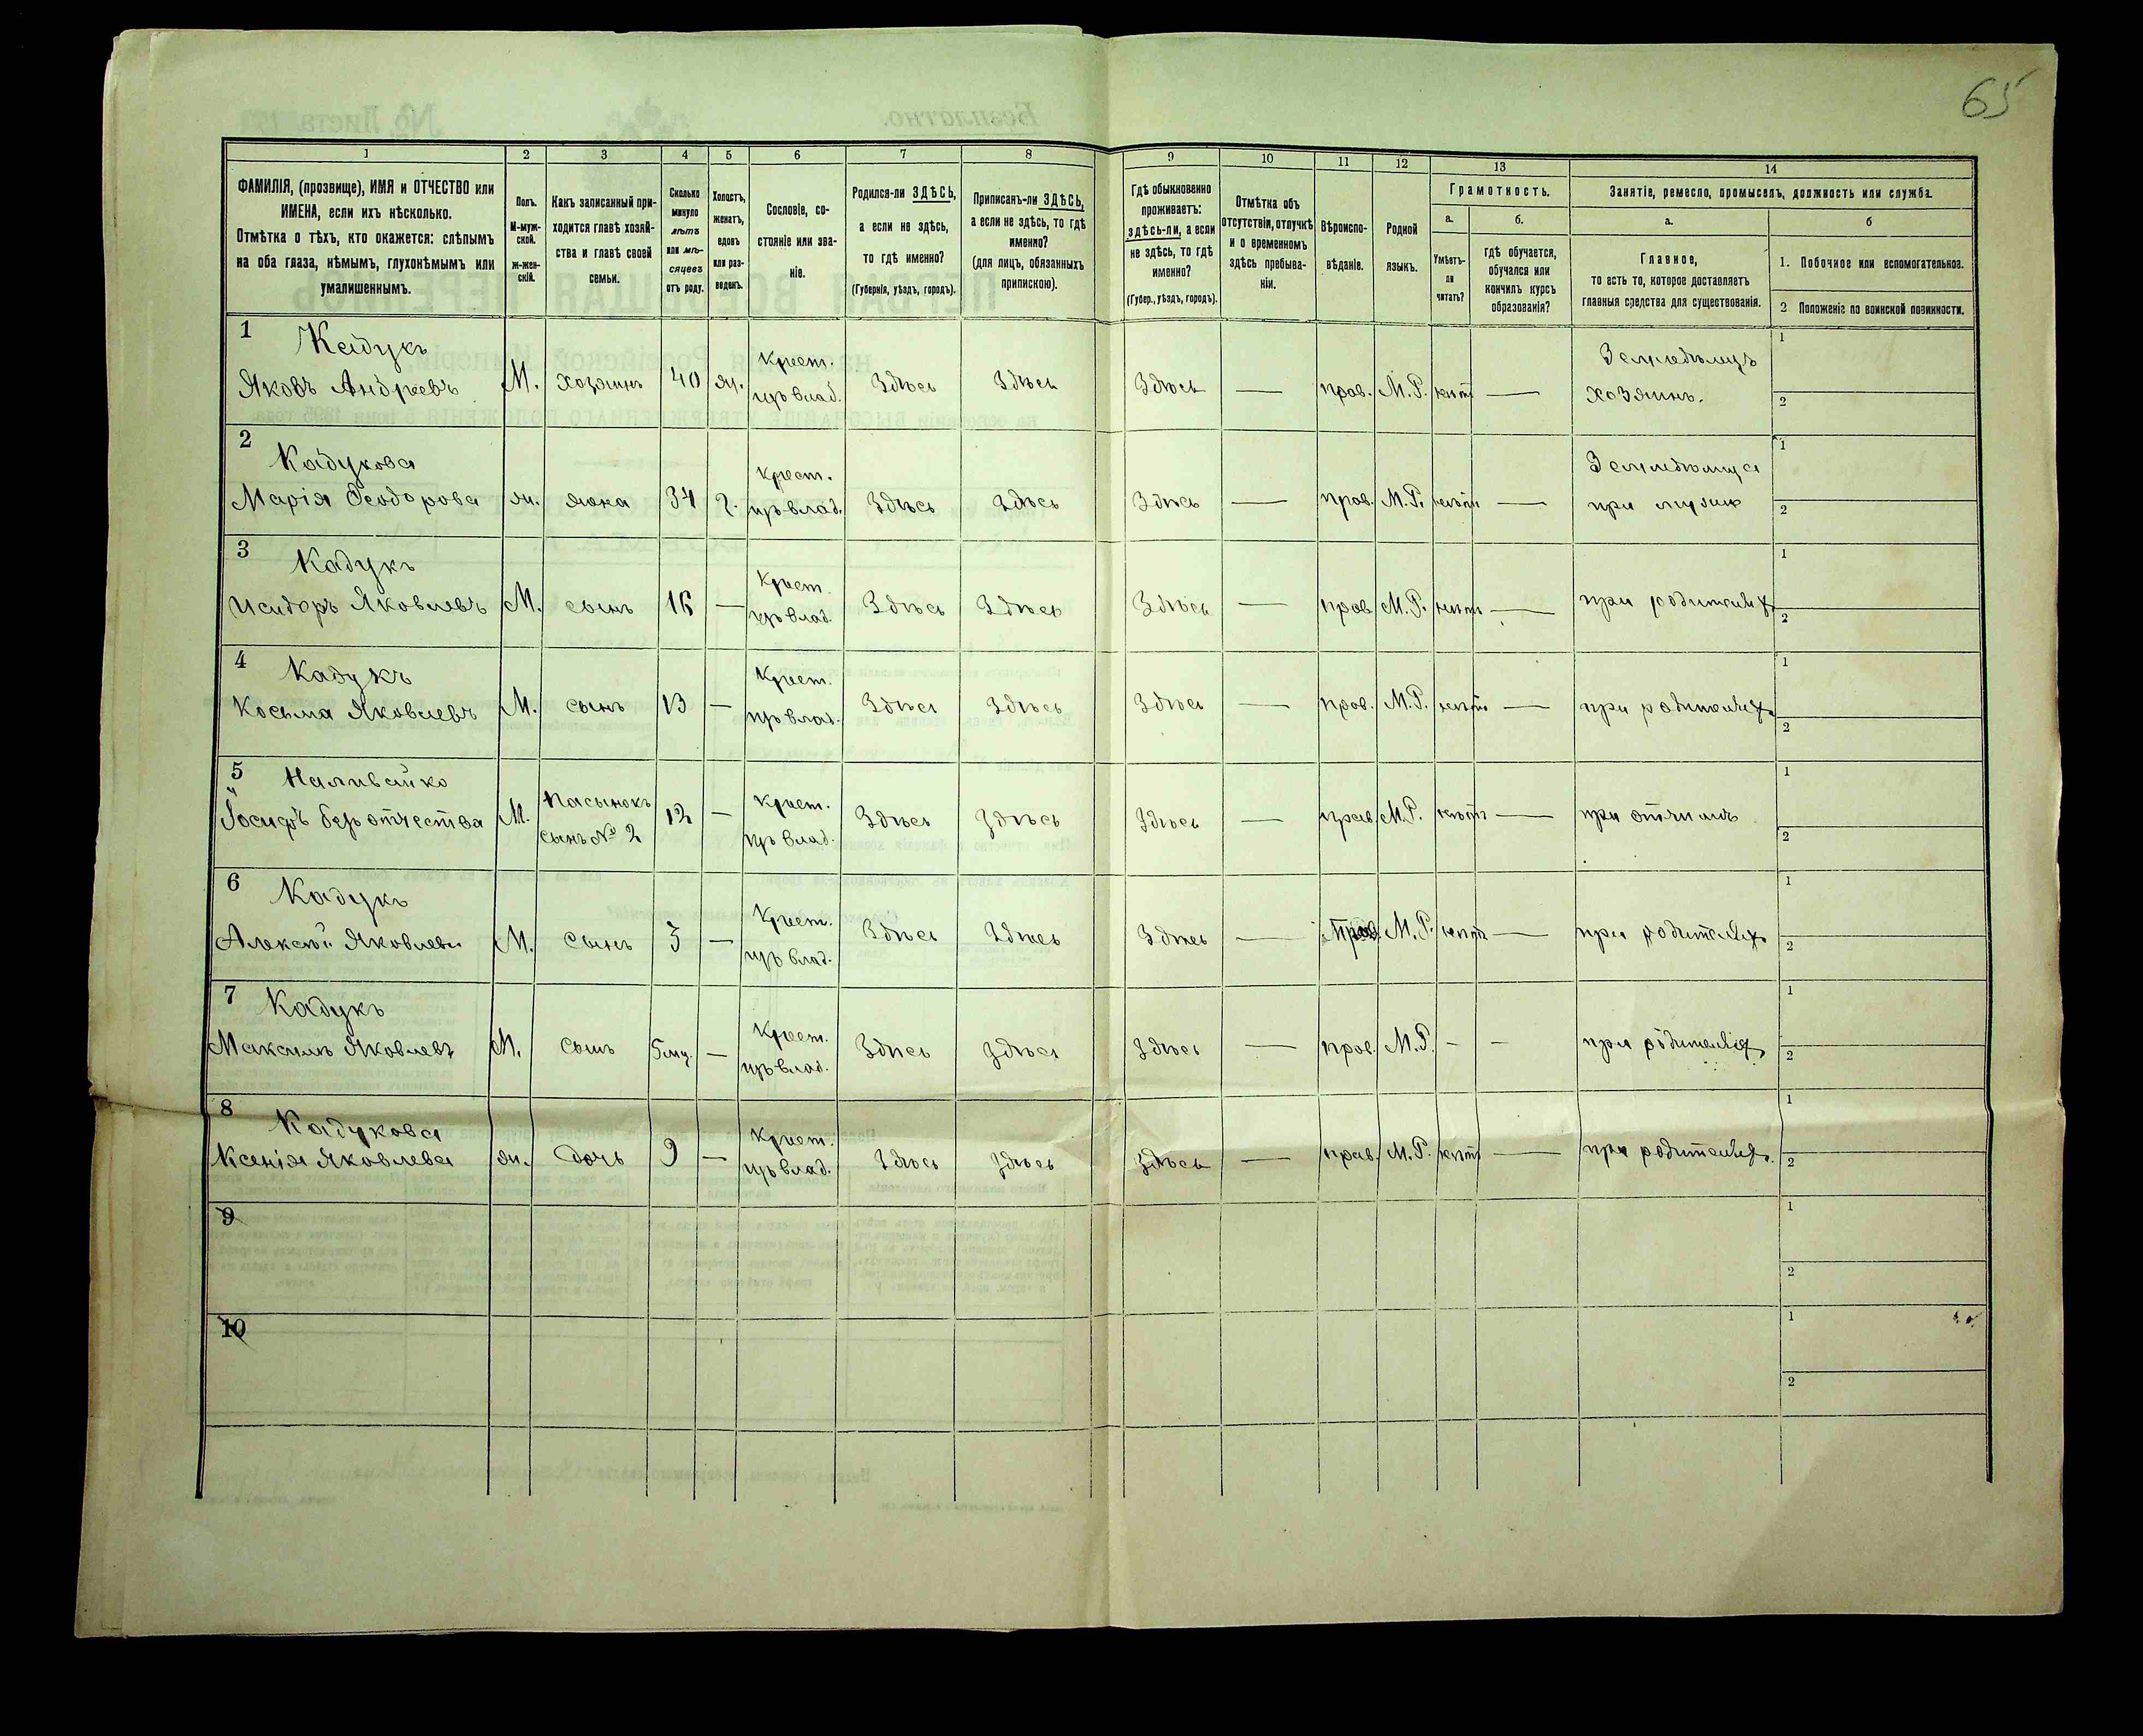 65
1
2
3
4
5
6
7
8
9
10
11
12
13
14
ФАМИЛІЯ, (прозвище), ИМЯ и ОТЧЕСТВО или
ИМЕНА, если ихъ нѣсколько.
Отмѣтка о тѣхъ, кто окажется: слѣпымъ
на оба глаза, нѣмымъ, глухонѣмымъ или
умалишеннымъ.
Полъ.
М-муж-
ской.
ж-жен-
скій.
Какъ записанный при-
ходится главѣ хозяй-
ства и главѣ своей
семьи.
Сколько
минуло
лѣтъ
или мѣ-
сяцевъ
отъ роду.
Холостъ,
женатъ,
вдовъ
или раз-
веденъ.
Сословіе, со-
стояніе или зва-
ніе.
Родился-ли ЗДѢСЬ,
а если не здѣсь,
то гдѣ именно?
(Губернія, уѣздъ, городъ).
Приписанъ-ли ЗДѢСЬ,
а если не здѣсь, то гдѣ
именно?
(для лицъ, обязанныхъ
припискою).
Гдѣ обыкновенно
проживаетъ:
здѣсь-ли, а если
не здѣсь, то гдѣ
именно?
(Губер., уѣздъ, городъ).
Отмѣтка объ
отсутствіи, отлучкѣ
и о временномъ
здѣсь пребыва-
ніи.
Вѣроиспо-
вѣданіе.
Родной
языкъ.
Грамотность.
а.
б.
Умѣетъ-
ли
читать?
гдѣ обучается,
обучался или
кончилъ курсъ
образованія?
Занятіе, ремесло, промыселъ, должность или служба.
а.
б
Главное,
то есть то, которое доставляетъ
главныя средства для существованія.
1. Побочное или вспомогательное.
2 Положеніе по воинской повинности.
1 Кадукъ
Яковъ Андреевъ М. хозяинъ 40 ж. Крест. изъ влад. Здѣсь Здѣсь Здѣсь — прав. М.Р. нѣтъ — Земледѣлецъ хозяинъ. 1 2
2 Кадукова
Марія Ѳеодорова ж. жена 34 Крест. изъ влад. Здѣсь Здѣсь Здѣсь — прав. М.Р. нѣтъ — при мужѣ 1 2
3 Кадукъ
Исидоръ Яковлевъ М. сынъ 16 — Крест. изъ влад. Здѣсь Здѣсь Здѣсь — прав М.Р. нѣтъ — при родителяхъ 1 2
4 Кадукъ
Косьма Яковлевъ М. сынъ 13 — Крест. изъ влад. Здѣсь Здѣсь Здѣсь — прав. М.Р. нѣтъ — при родителяхъ 1 2
5 Наливайко
Іосифъ безъ отчества М. Пасынокъ сынъ № 2 12 — Крест. изъ влад. Здѣсь Здѣсь Здѣсь — прав. М.Р. нѣтъ — при отчимѣ 1 2
6 Кадукъ
Алексѣй Яковлевъ М. сынъ 3 — Крест. изъ влад. Здѣсь Здѣсь Здѣсь — прав. М.Р. нѣтъ — при родителяхъ 1 2
7 Кадукъ
Максимъ Яковлевъ М. сынъ 5 мц. — Крест. изъ влад. Здѣсь Здѣсь Здѣсь — прав. М.Р. - - при родителяхъ 1 2
8 Кадукова
Ксенія Яковлева ж. дочь 9 — Крест. изъ влад. Здѣсь Здѣсь Здѣсь — прав. М.Р. нѣтъ — при родителяхъ. 1 2
9 1 2
10 1 2